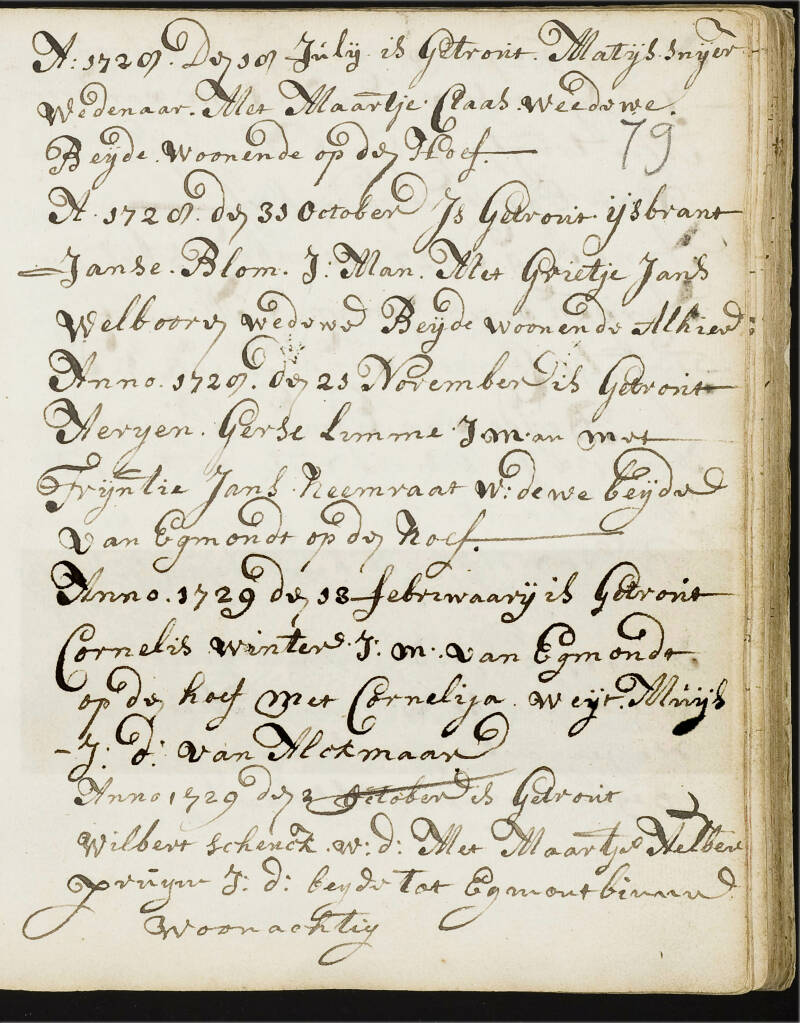 A: 1728. Den 18 July is Getrout. Matijs snyer
Wedenaar. Met Maartje Claas Weedewe.
79
Beyde. Woonende op den Hoef.
A. 1728. den 31 October Is Getrout ijsbrant
Janse. Blom. J: Man. Met Grietje Jans
Welbooren wedewe Beyde woonende Alhier:
Anno. 1728. den 21 November is Getrout
Aeryen. Gerse Limme J m:an met
Trijntie Jans Heemraat W:dewe beyde
van Egmondt op den hoef.
Anno. 1729 den 13 febrìwaarij is Getrout
Cornelis winter J: m: van Egmondt
op den hoef met Cornelija. Weyt. Muijs
J: d: van Alckmaar
Anno 1729 den 2 October is Getrout
Wilbert Schenck. w: d: Met Maartje Aelbers
pruym J: d: beyde tot Egmont binnen
Woonachtig